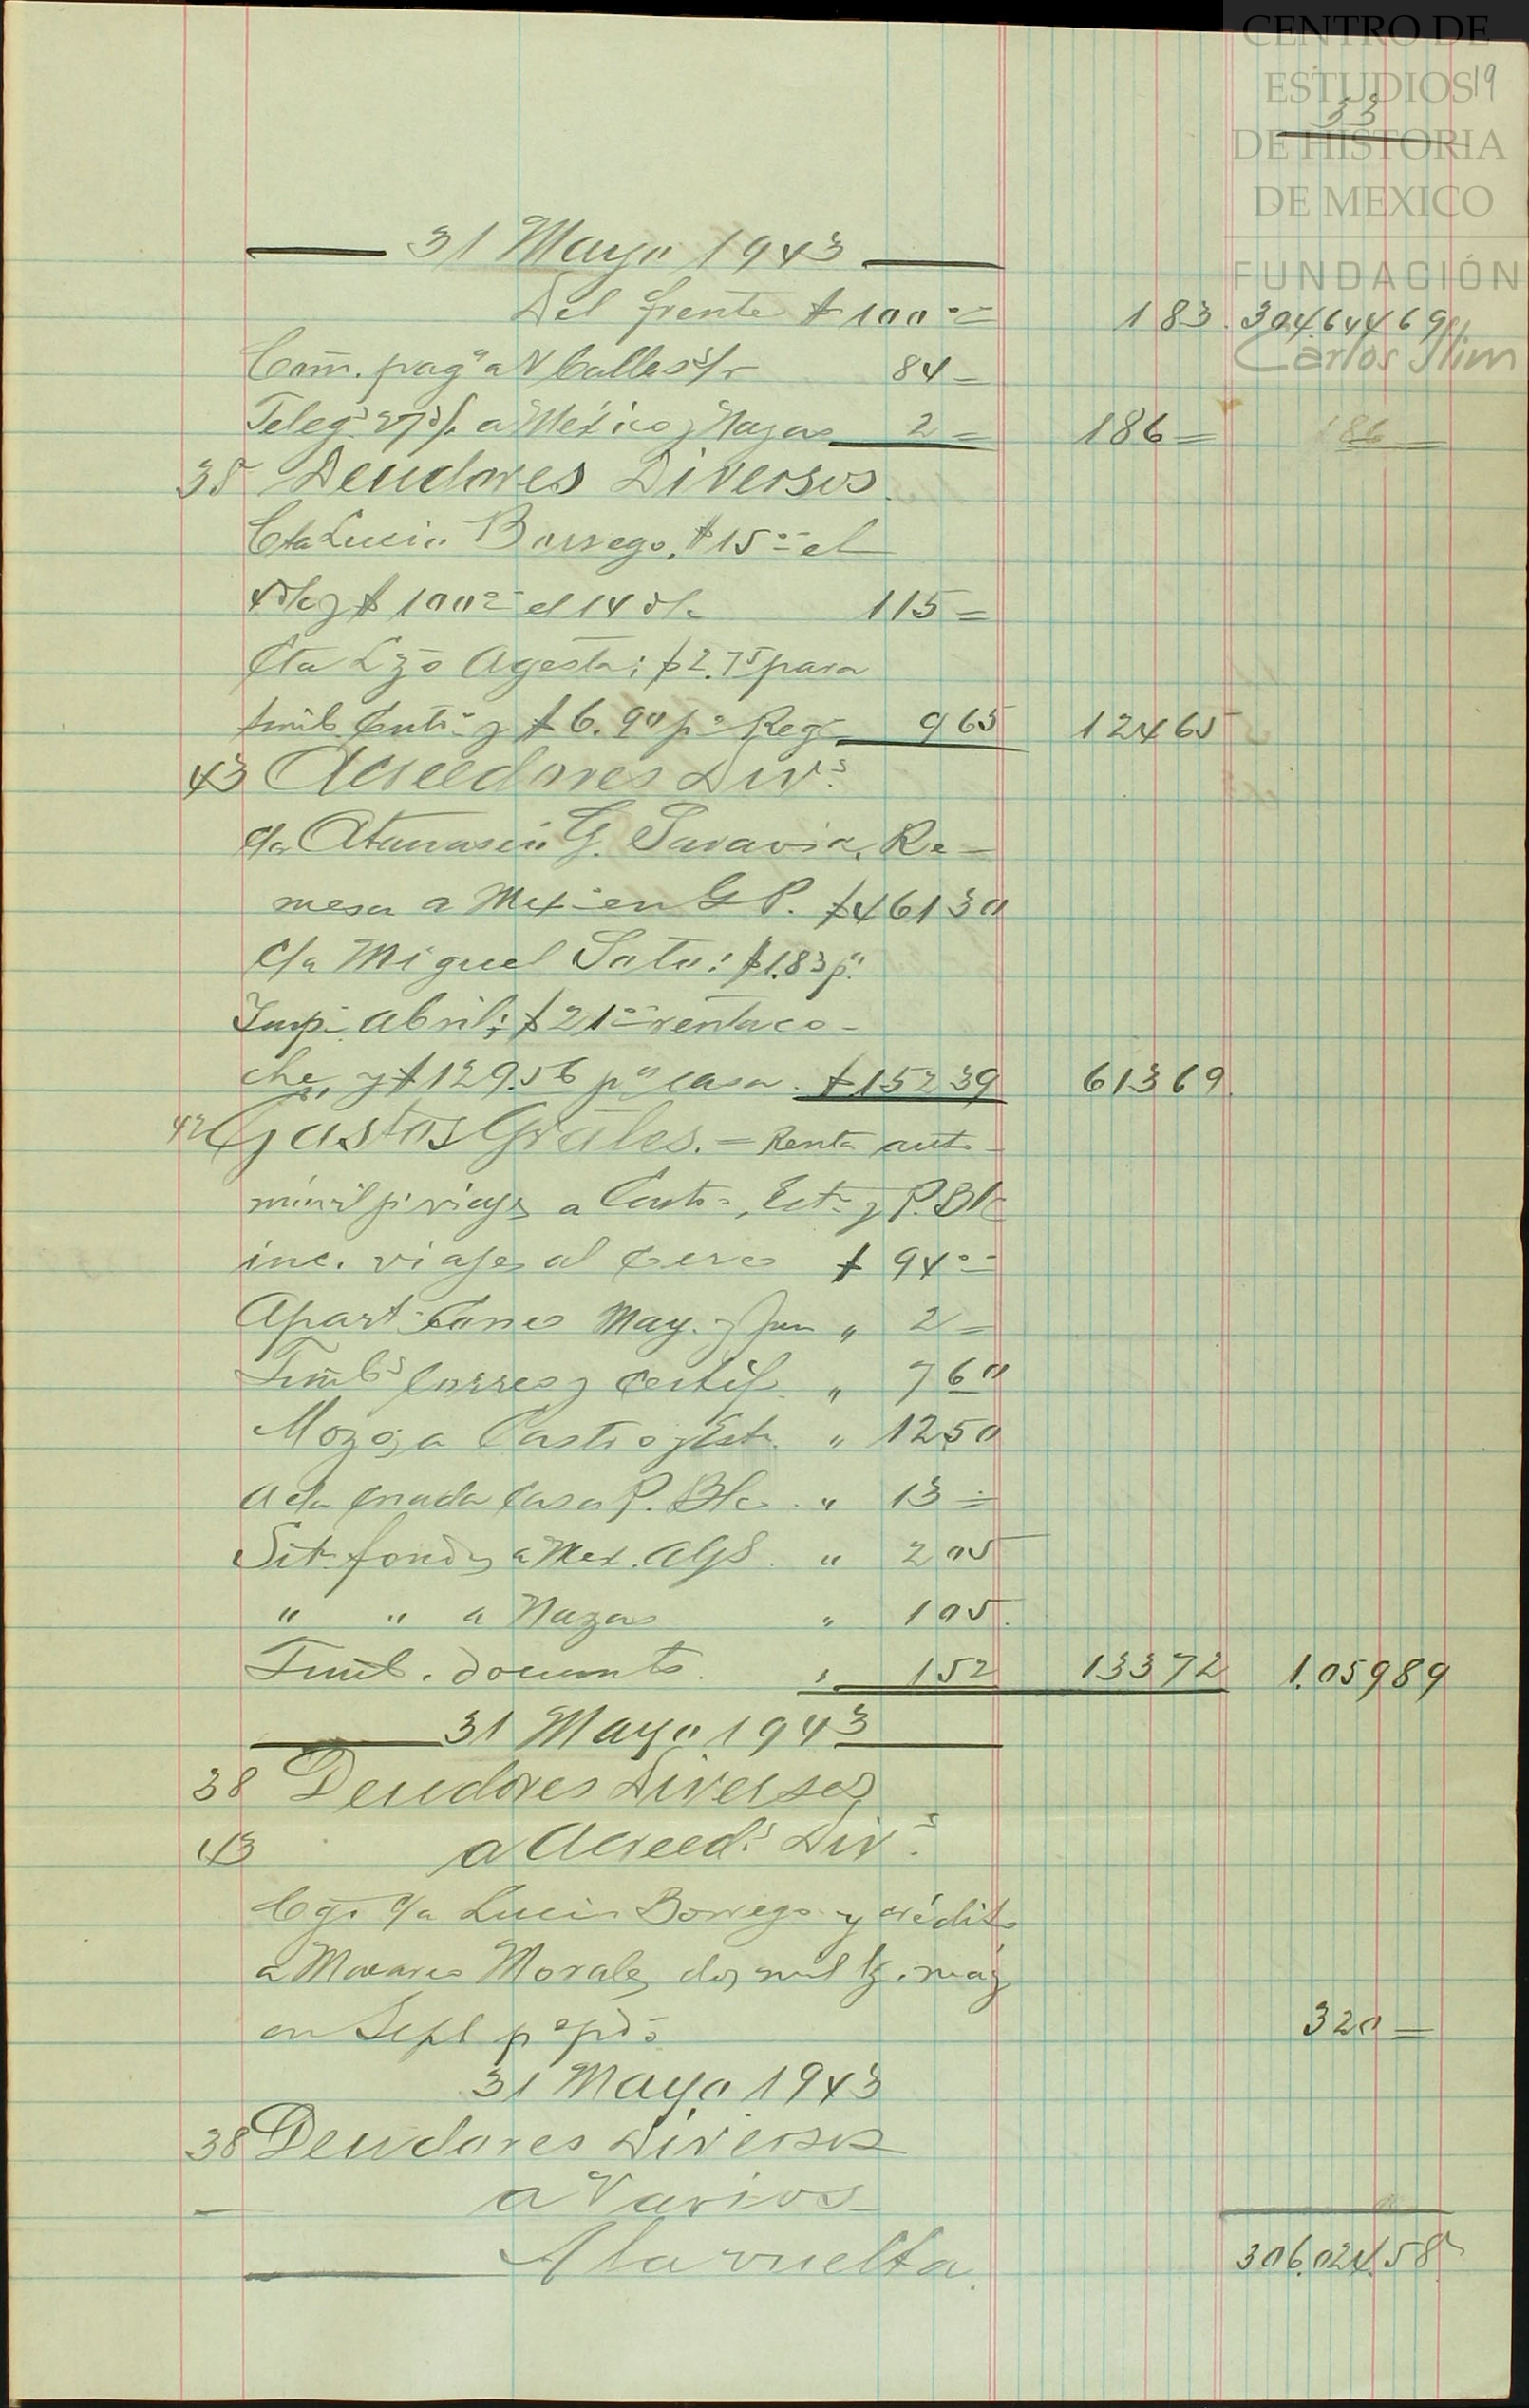 CENTRO DE
ESTUDIOS 19
33
DE HISTORIA
DE MEXICO
FUNDACIÓN
Carlos Slim
31 Mayo 1943
Del frente $ 100 00 183. 304.644 69
Com. pag° a V Calles s/r 84 =
Teleg s a México y Nazas 2 = 186 = 186 =
38 Deudores Diversos.
Cta Lucio Borrego. $ 15 00 el
y $ 100 00 el 14 d/c 115 =
Cta Lzo Agesta: $ 2.75 para
timb. y $ 6.90 p° Reg 9 65 124 65
43 Acreedores Divs.
c/a Atanasio G. Saravia, Re-
mesa a Mex- en G P. $ 461 30
c/a Miguel Soto: $ 1.83 p.
Imp. Abril; $ 21 00 renta co-
che, y $ 129.56 p° casa. $ 152 39 613 69
42 Gastos Grales. = Renta auto-
móvil p. viajes a Casto, Est. y P. Blc
inc. viajes al $ 94 00
Apart. Correo May. y Jun " 2 =
Timbs Correo y Certif. " 7 60
Mozos a Castro y Est. " 12 50
A cta criada Casa P. Blc. " 13 =
Sit. fondos a Mex. AGS. " 2 05
" " a Nazas " 1 05.
Timb. documto. " 1 52 133 72 1.059 89
31 Mayo 1943
38 Deudores Diversos
43 a Acreeds Divs.
Cgo c/a Lucio Borrego y crédito
a Morales dos mil k. maíz
en Sept p° pdo 320 =
31 Mayo 1943
38 Deudores Diversos
a Varios
A la vuelta. 306.024.58